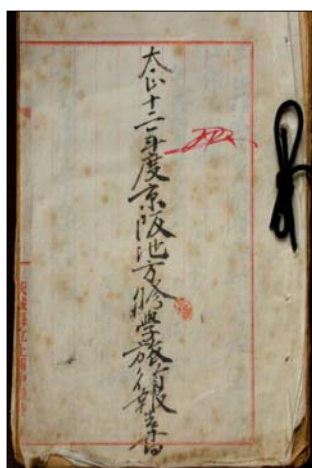 大正十二年度京阪地方修學旅行報告書